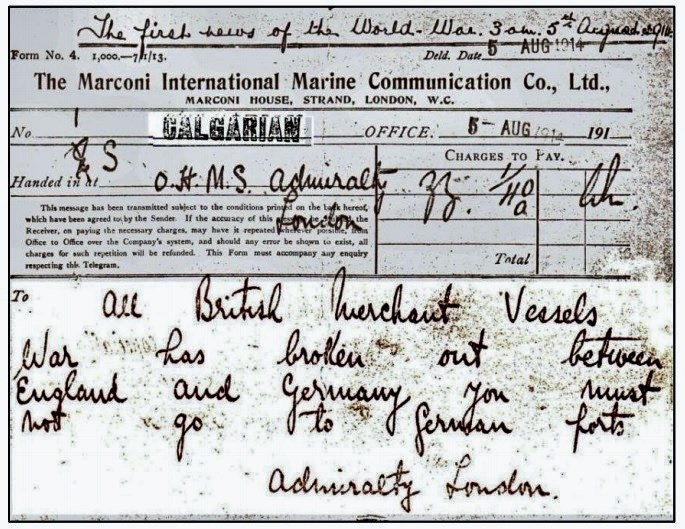 The first news of the World War. 3 am. 5th August 1914.
Form No. 4. 1,000.—7/1/13. Deld. Date 5 AUG 1914
The Marconi International Marine Communication Co., Ltd.,
MARCONI HOUSE, STRAND, LONDON, W.C.
No 1 CALGARIAN OFFICE. 5- AUG 1914 191
CHARGES TO PAY.
Handed in at O.H.M.S. Admiralty
London
This message has been transmitted subject to the conditions printed on the back hereof,
which have been agreed to by the Sender. If the accuracy of this message be doubted, the
Receiver, on paying the necessary charges, may have it repeated wherever possible, from
Office to Office over the Company's system, and should any error be shown to exist, all
charges for such repetition will be refunded. This Form must accompany any enquiry
respecting this Telegram.
Total
To All British Merchant Vessels
War has broken out between
England and Germany you must
not go to German ports
Admiralty London.